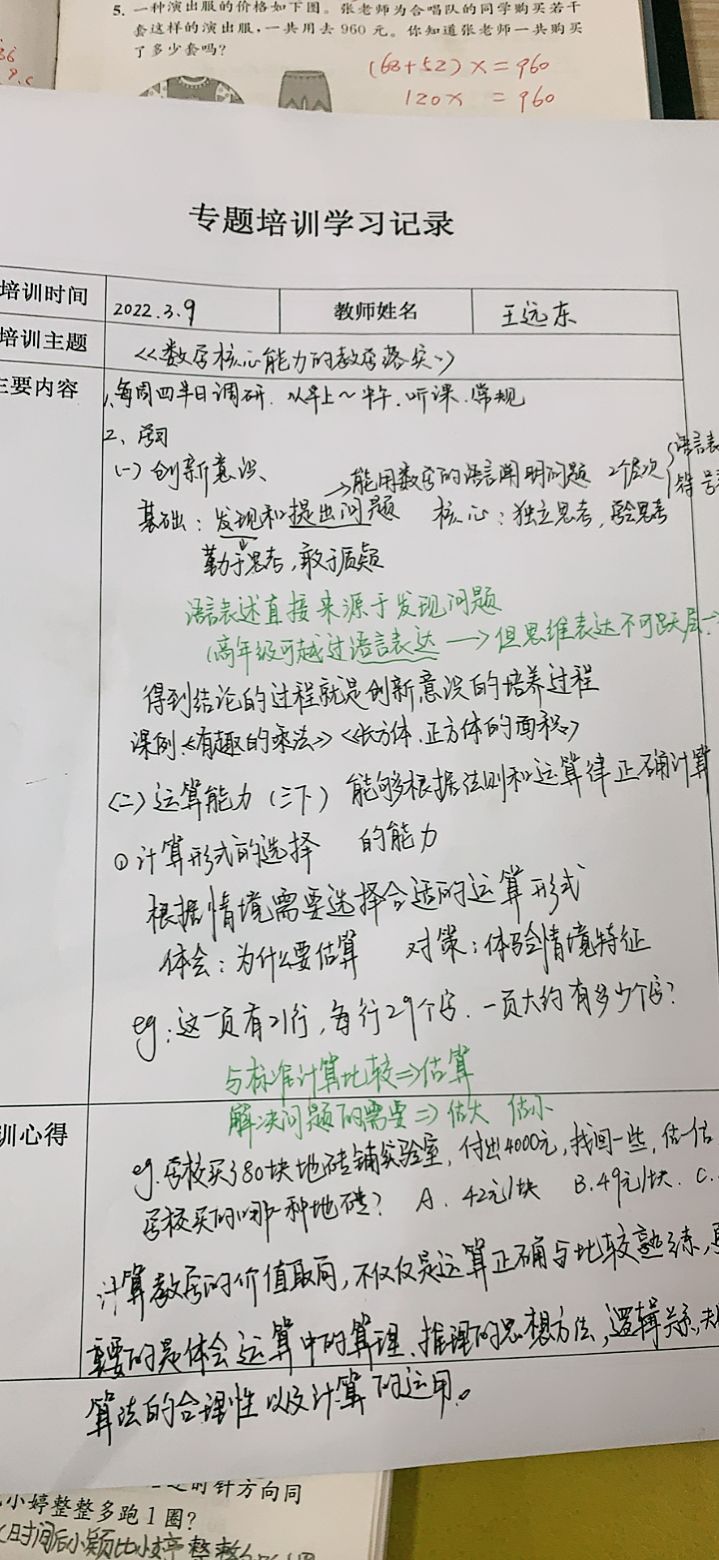 5. 一种演出服的价格如下图。张老师为合唱队的同学购买若干
套这样的演出服，一共用去 960 元。你知道张老师一共购买
了多少套吗?
(68+52)x=960
120x =960
专题培训学习记录
培训时间 2022.3.9 教师姓名 王远东
培训主题 《数学核心能力的教学落实》
主要内容 1、每周四半日调研. 从早上~中午.听课.常规
2、学习
(一)创新意识、
→能用数学的语言阐明问题 2个层次 语言表
符号
基础：发现和提出问题 核心：独立思考，学会思考
勤于思考,敢于质疑
语言表述直接来源于发现问题
(高年级可越过语言表达→但思维表达不可跃层
得到结论的过程就是创新意识的培养过程
课例《有趣的乘法》《长方体.正方体的面积》
(二)运算能力(三下) 能够根据法则和运算律正确计算
的能力
①计算形式的选择
根据情境需要选择合适的运算形式
体会：为什么要估算 对策：体验情境特征
eg：这一页有21行，每行29个字. 一页大约有多少个字?
与标准计算比较⇒估算
解决问题的需要⇒估大 估小
训心得
eg.学校买380块地砖铺实验室，付出4000元，找回一些，估一估
学校买的哪一种地砖? A. 42元/块 B.49元/块. C.
计算教学的价值取向，不仅仅是运算正确与比较熟练，更
重要的是体会运算中的算理、推理的思想方法,逻辑关系,
算法的合理性以及计算的运用。
时针方向同
小婷整整多跑 1 圈?
时间后小颖比小婷整整